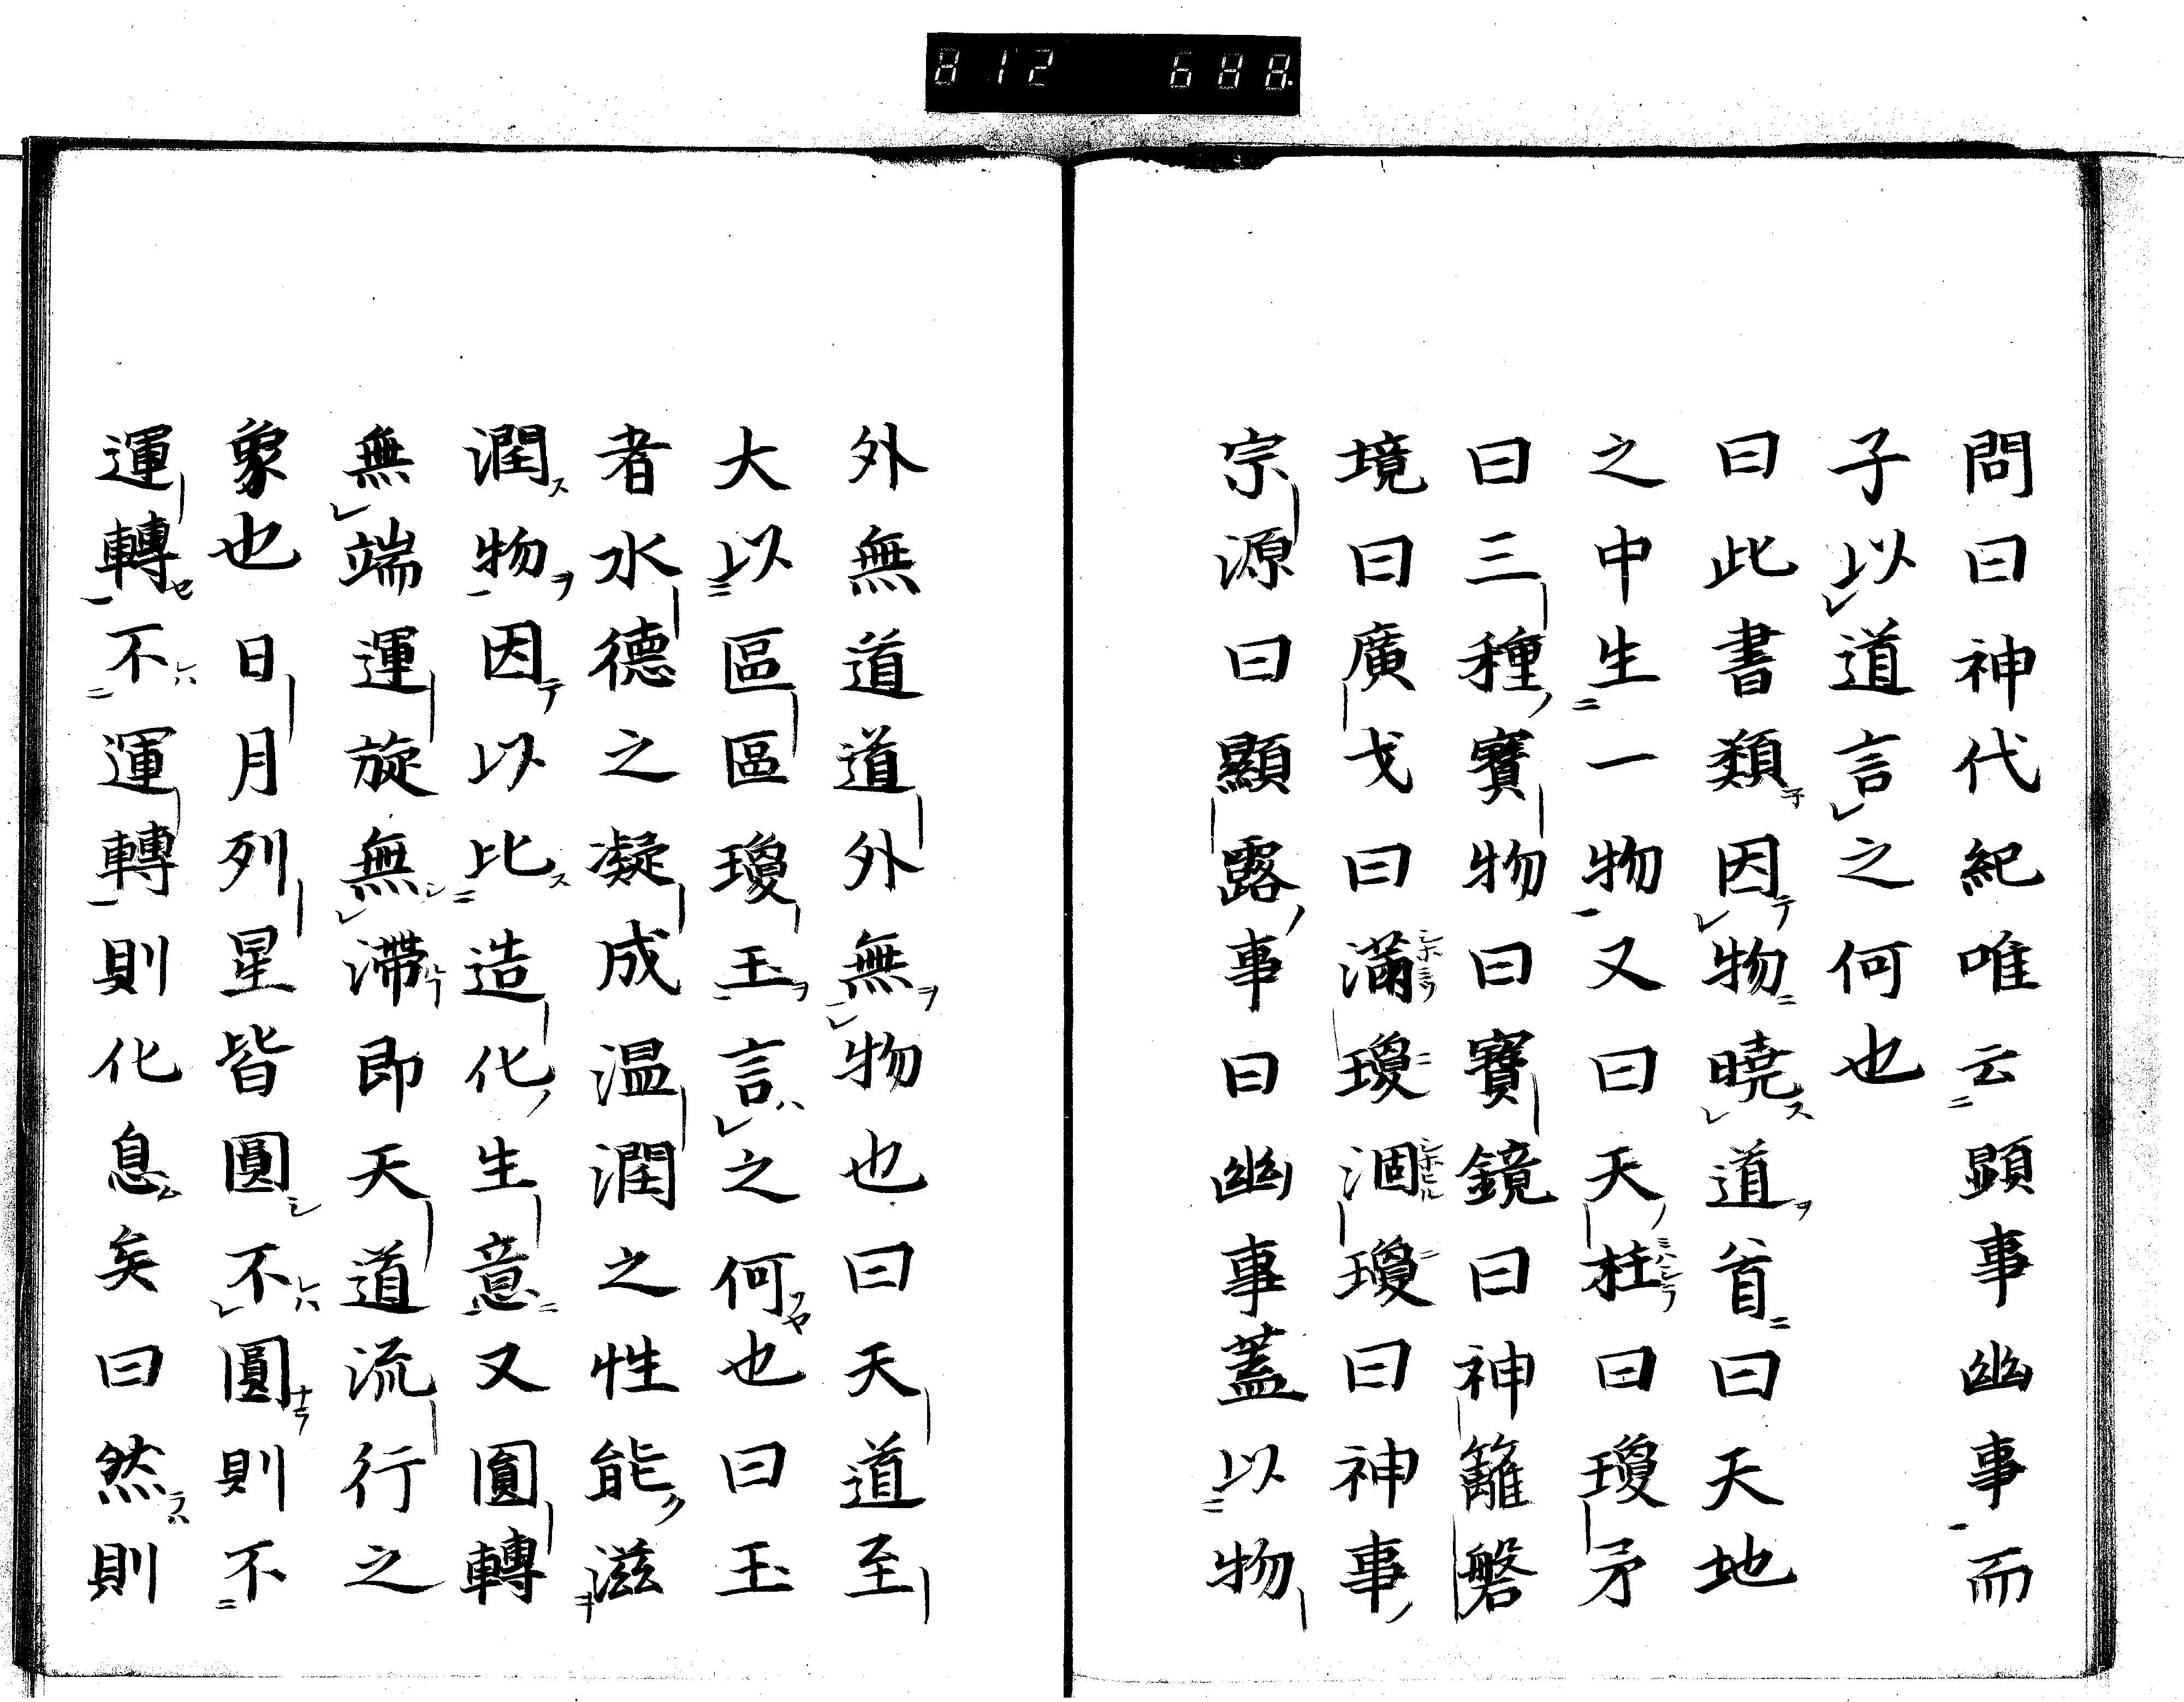 812 688.
問曰神代紀唯云顕事幽事而
子以道言之何也
曰此書類因物曉道首曰天地
之中生一物又曰天柱曰瓊矛
曰三種寶物曰寶鏡曰神籬磐
境曰廣戈曰滿瓊涸瓊曰神事
宗源曰顯露事曰幽事蓋以物
外無道道外無物也曰天道至
大以區區瓊玉言之何也曰玉
者水德之凝成温潤之性能滋
潤物因以比造化生意又圓轉
無端運旋無滯即天道流行之
象也日月列星皆圓不圓則不
運轉不運轉則化息矣曰然則